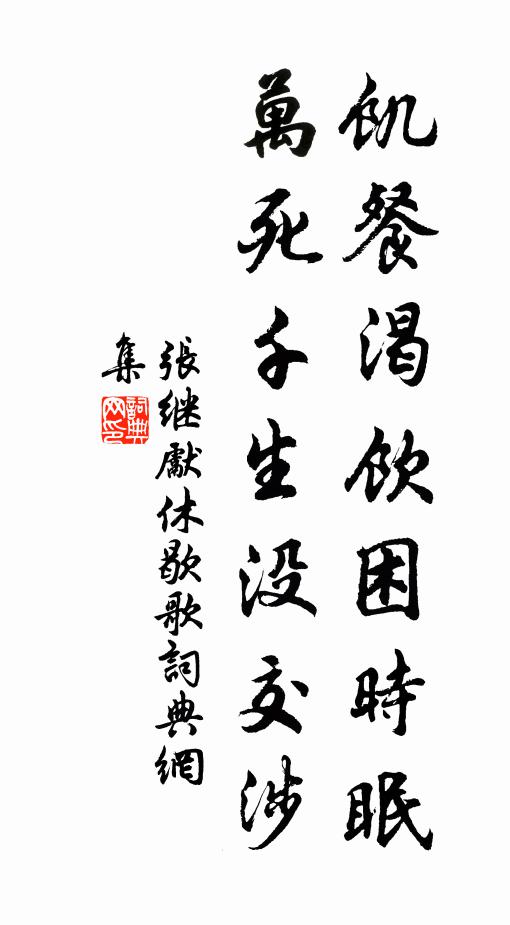 飢餐渴飲困時眠
萬死千生没交涉
張继獻休歇歌詞典網
集
詞典
网印